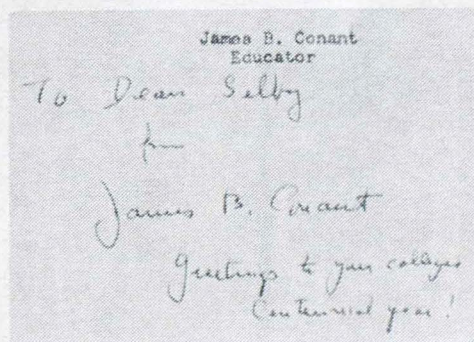 James B. Conant
Educator
To Dean Selby
from
James B. Conant
Greetings to your colleges
Centennial year!